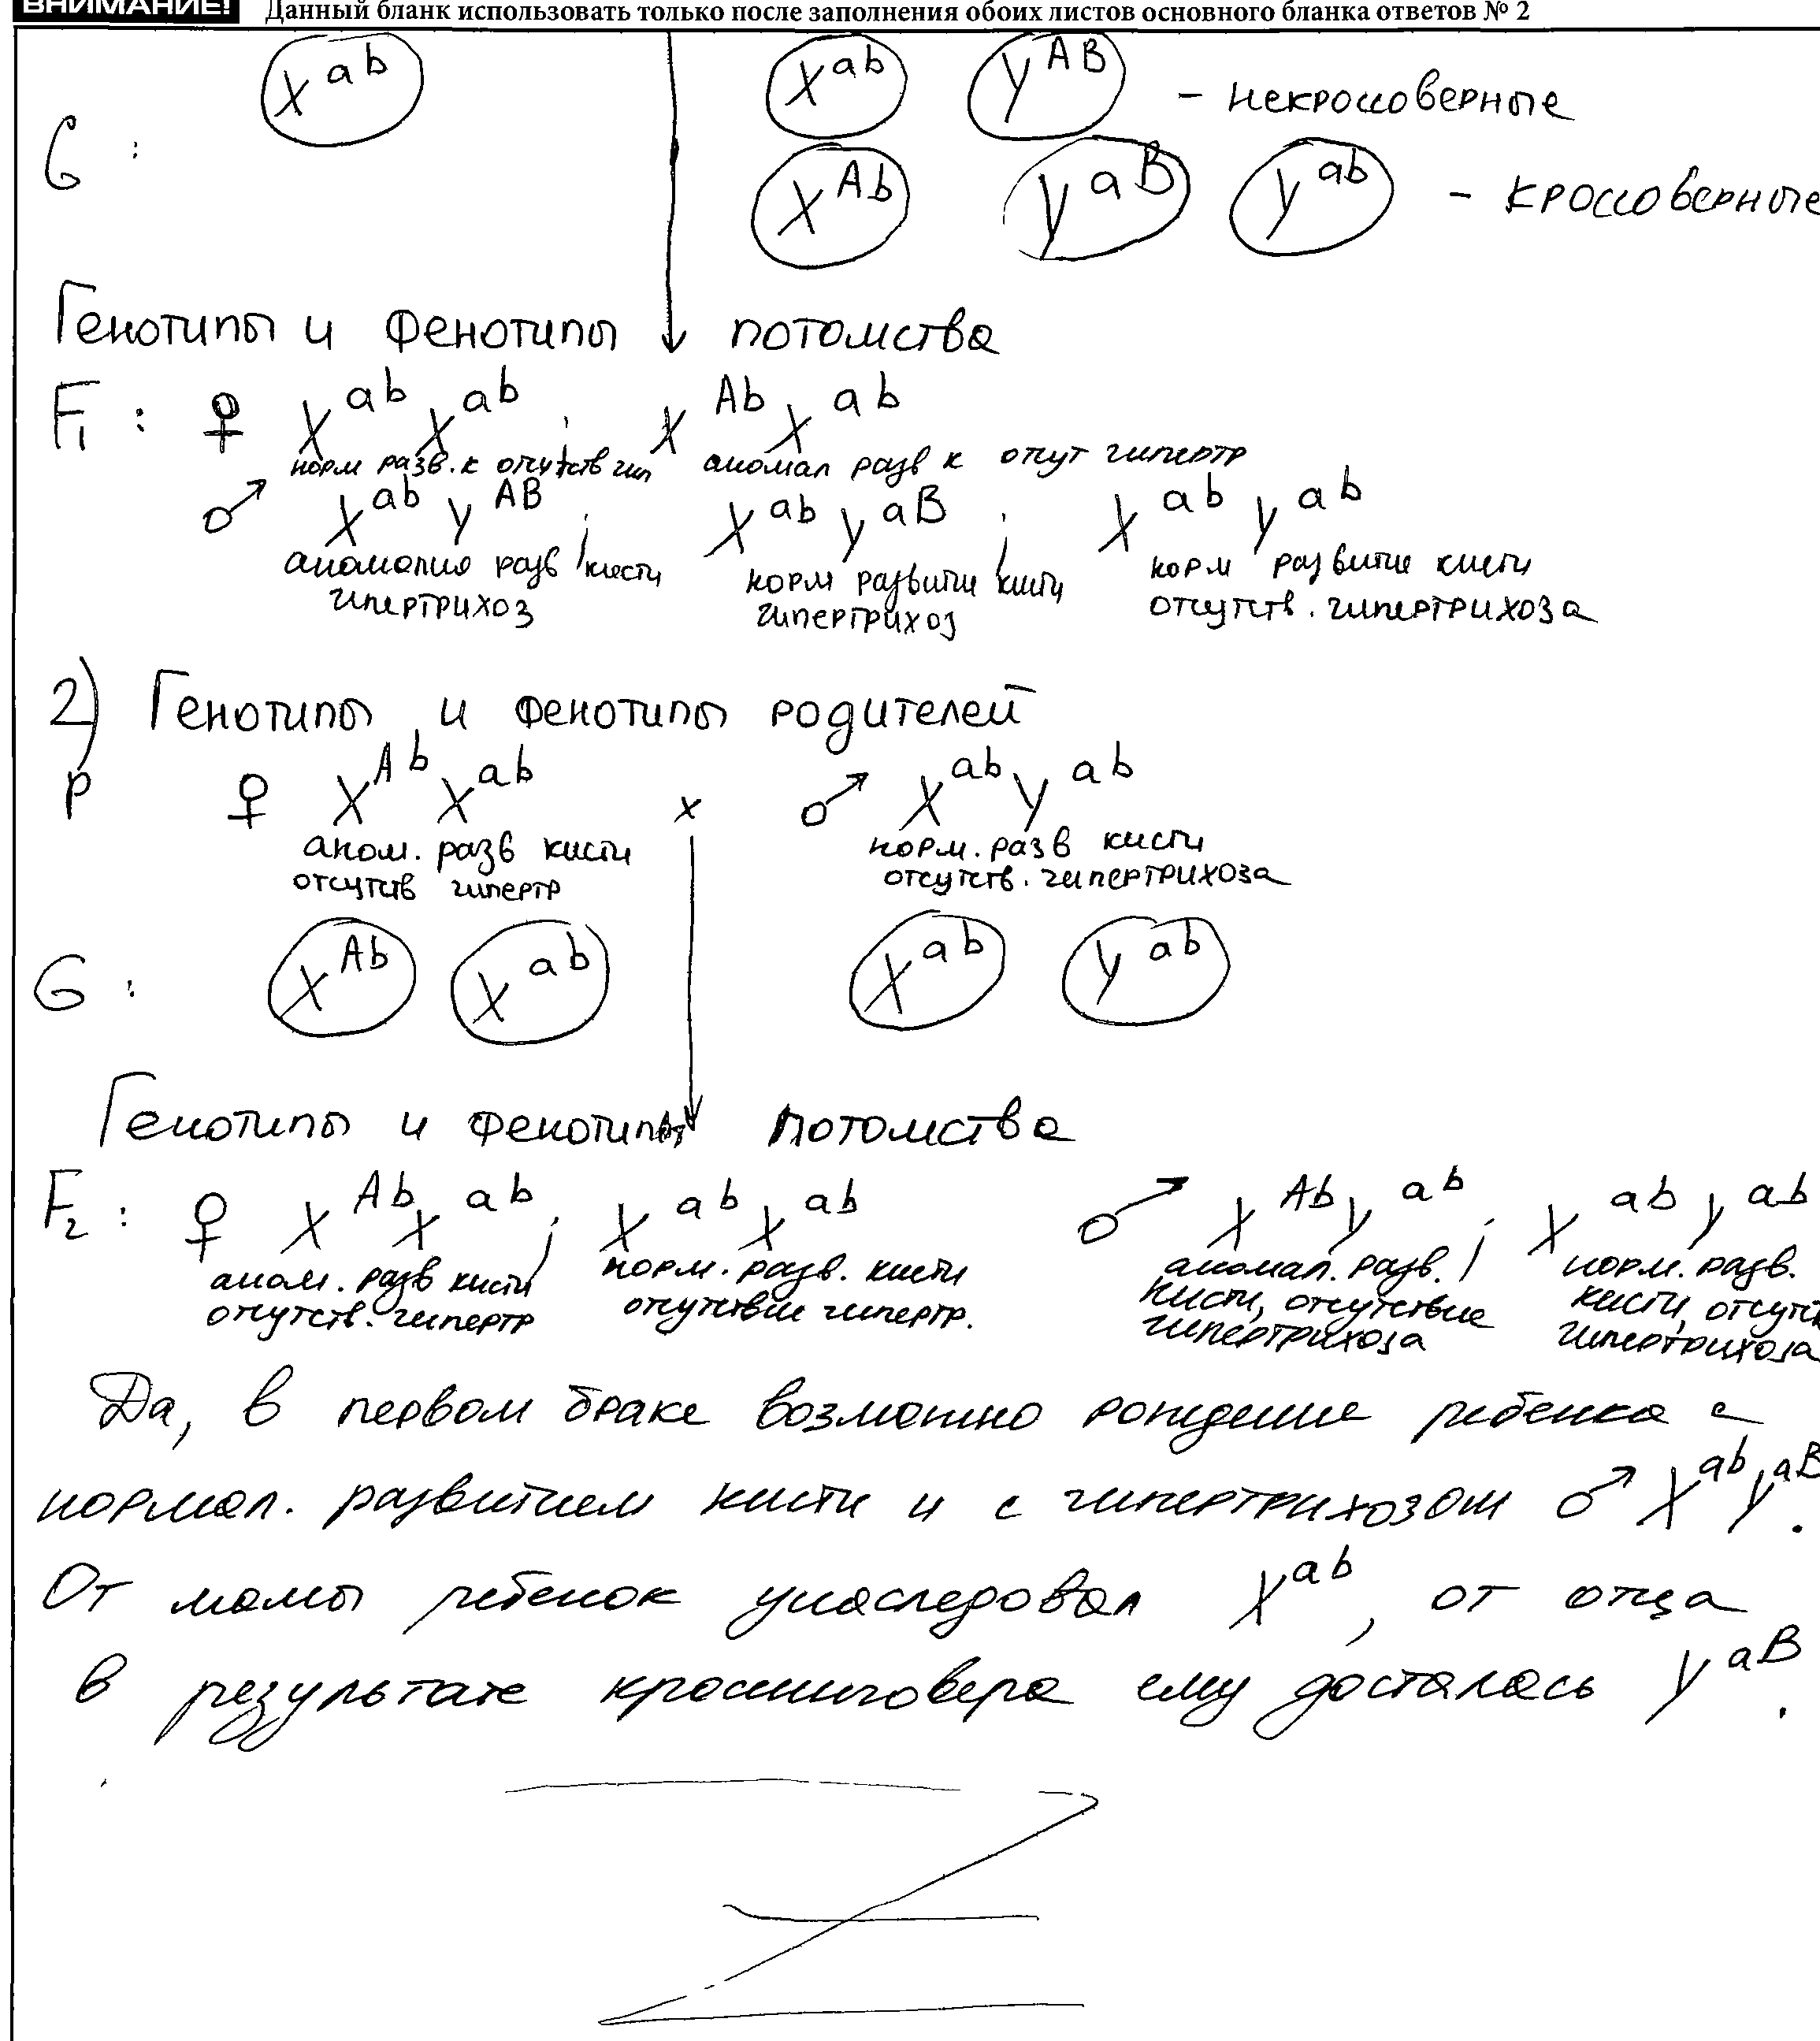 ВНИМАНИЕ! Данный бланк использовать только после заполнения обоих листов основного бланка ответов № 2
X^ab X^ab Y^AB - некроссоверные
G : X^Ab Y^aB Y^ab - кроссоверные
Генотипы и Фенотипы потомства
F1 : ♀ X^ab X^ab ; X^Ab X^ab
норм разв. к отсутств гип аномал разв к отсут гипертр
♂ X^ab Y^AB ; X^ab Y^aB ; X^ab Y^ab
аномалия разв кисти норм развити кисти норм развитие кисти
гипертрихоз гипертрихоз отсутств. гипертрихоза
2) Генотипы и Фенотипы родителей
P ♀ X^Ab X^ab x ♂ X^ab Y^ab
аном. разв кисти норм. разв кисти
отсутств гипертр отсутств. гипертрихоза
G : X^Ab X^ab X^ab Y^ab
Генотипы и Фенотипы потомства
F2 : ♀ X^Ab X^ab ; X^ab X^ab ♂ X^Ab Y^ab ; X^ab Y^ab
аном. разв кисти норм. разв. кисти аномал. разв. норм. разв.
отсутств. гипертр отсутствие гипертр. кисти, отсутствие кисти, отсутст
гипертрихоза гипертрихоза
Да, в первом браке возможно рождение ребенка с
нормал. развитием кисти и с гипертрихозом ♂ X^ab Y^aB.
От мамы ребенок унаследовал X^ab, от отца
в результате кроссинговера ему досталась Y^aB.